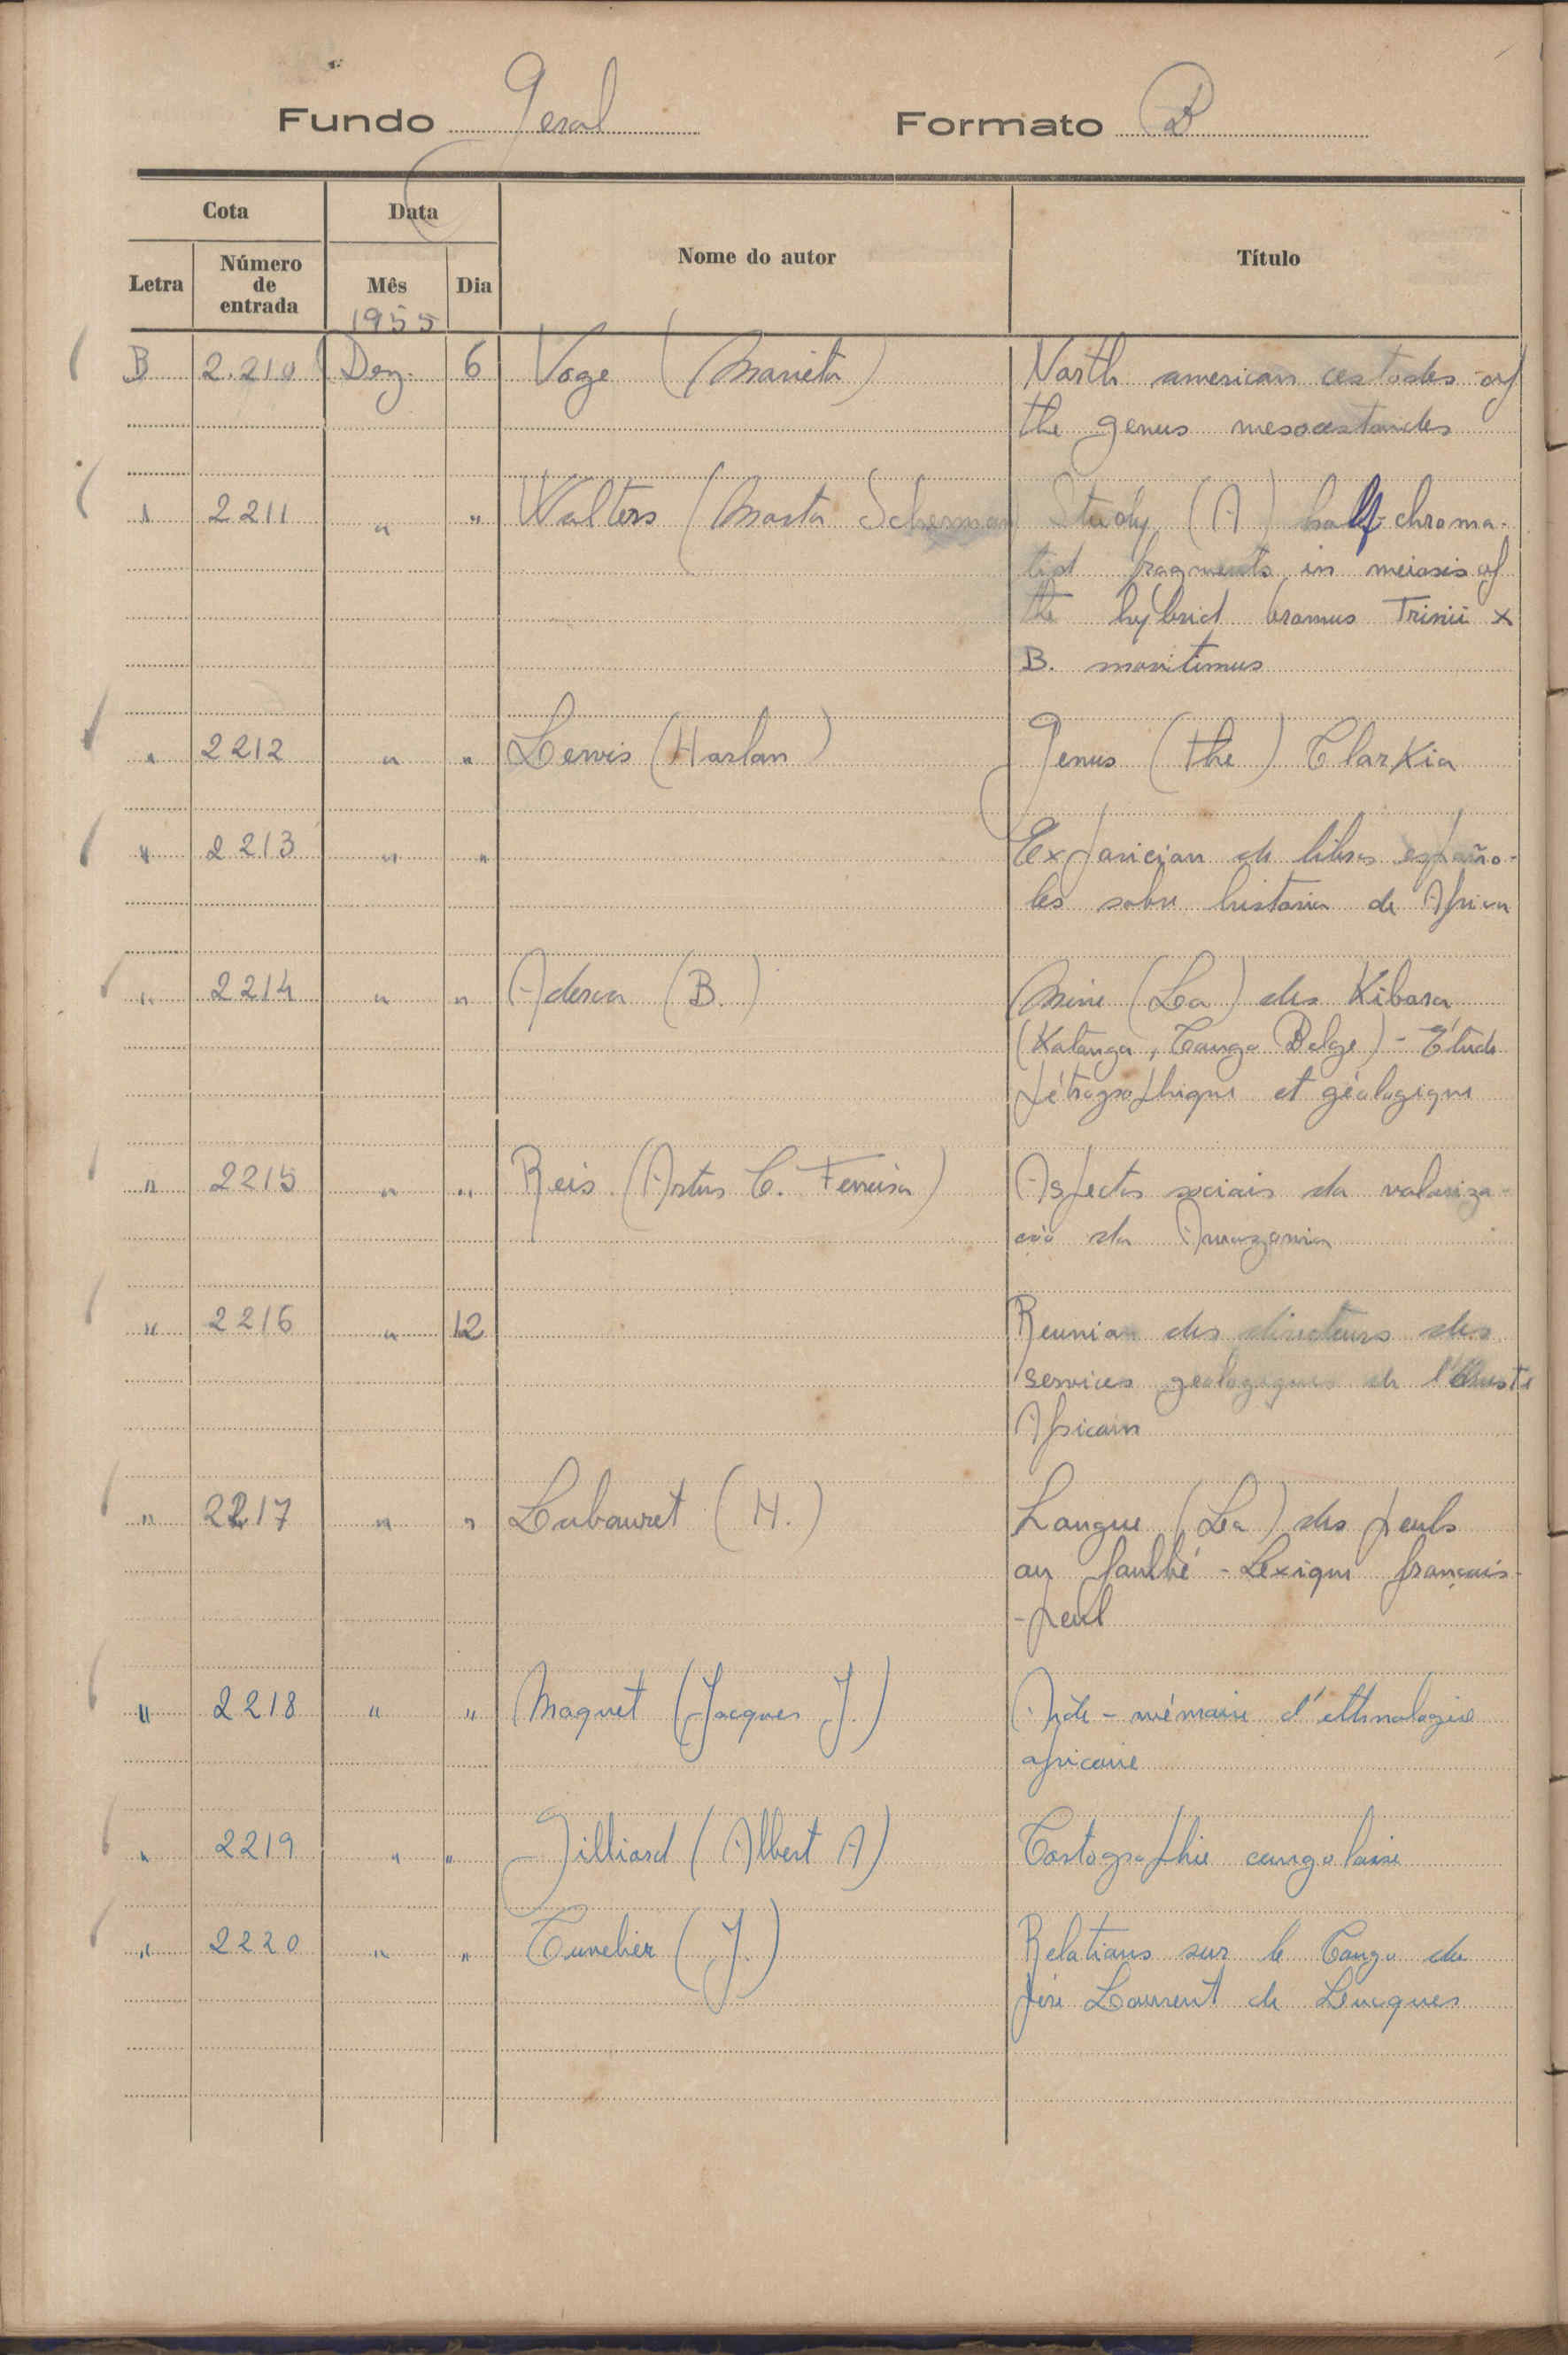 Fundo Geral Formato B
Cota Data Nome do autor Título
Letra Número de entrada Mês Dia
1955
B 2.210 Dez. 6 Voge (Marieta) North american cestodes of
the genus mesocestoides
" 2211 " " Walters (Marta Scherman Study (A) half-chroma-
tid fragments in meiosis of
the hybrid bromus Trinii x
B. maritimus
" 2212 " " Lewis (Harlan) Genus (the) Clarkia
" 2213 " " Exposicion de libros españo-
les sobre historia de Africa
" 2214 " " Aderca (B.) Mine (La) des Kibara
(Katanga, Congo Belge) - Étude
pétrographique et géologique
" 2215 " " Reis (Artur C. Ferreira) Aspectos sociais da valoriza-
ção da Amazonia
" 2216 " 12 Reunion des directeurs des
services geologiques de l'Ouest
Africain
" 2217 " " Labouret (H.) Langue (La) des peuls
ou foulbé - Lexique français-
-peul
" 2218 " " Maquet (Jacques J.) Aide-mémoire d'ethnologie
africaine
" 2219 " " Gilliard (Albert A) Cartographie congolaise
" 2220 " " Cuvelier (J.) Relations sur le Congo du
père Laurent de Lucques